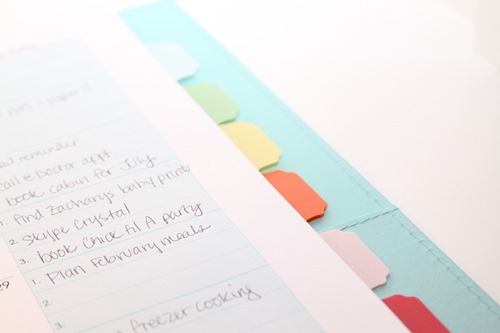 ail reminder
call @ Doctor appt
book cabin for July.
1. Find Zachary's baby prints
2. Skype Crystal
3. book Chick fil A party
1. Plan February meals
29
2.
3.
freezer cooking